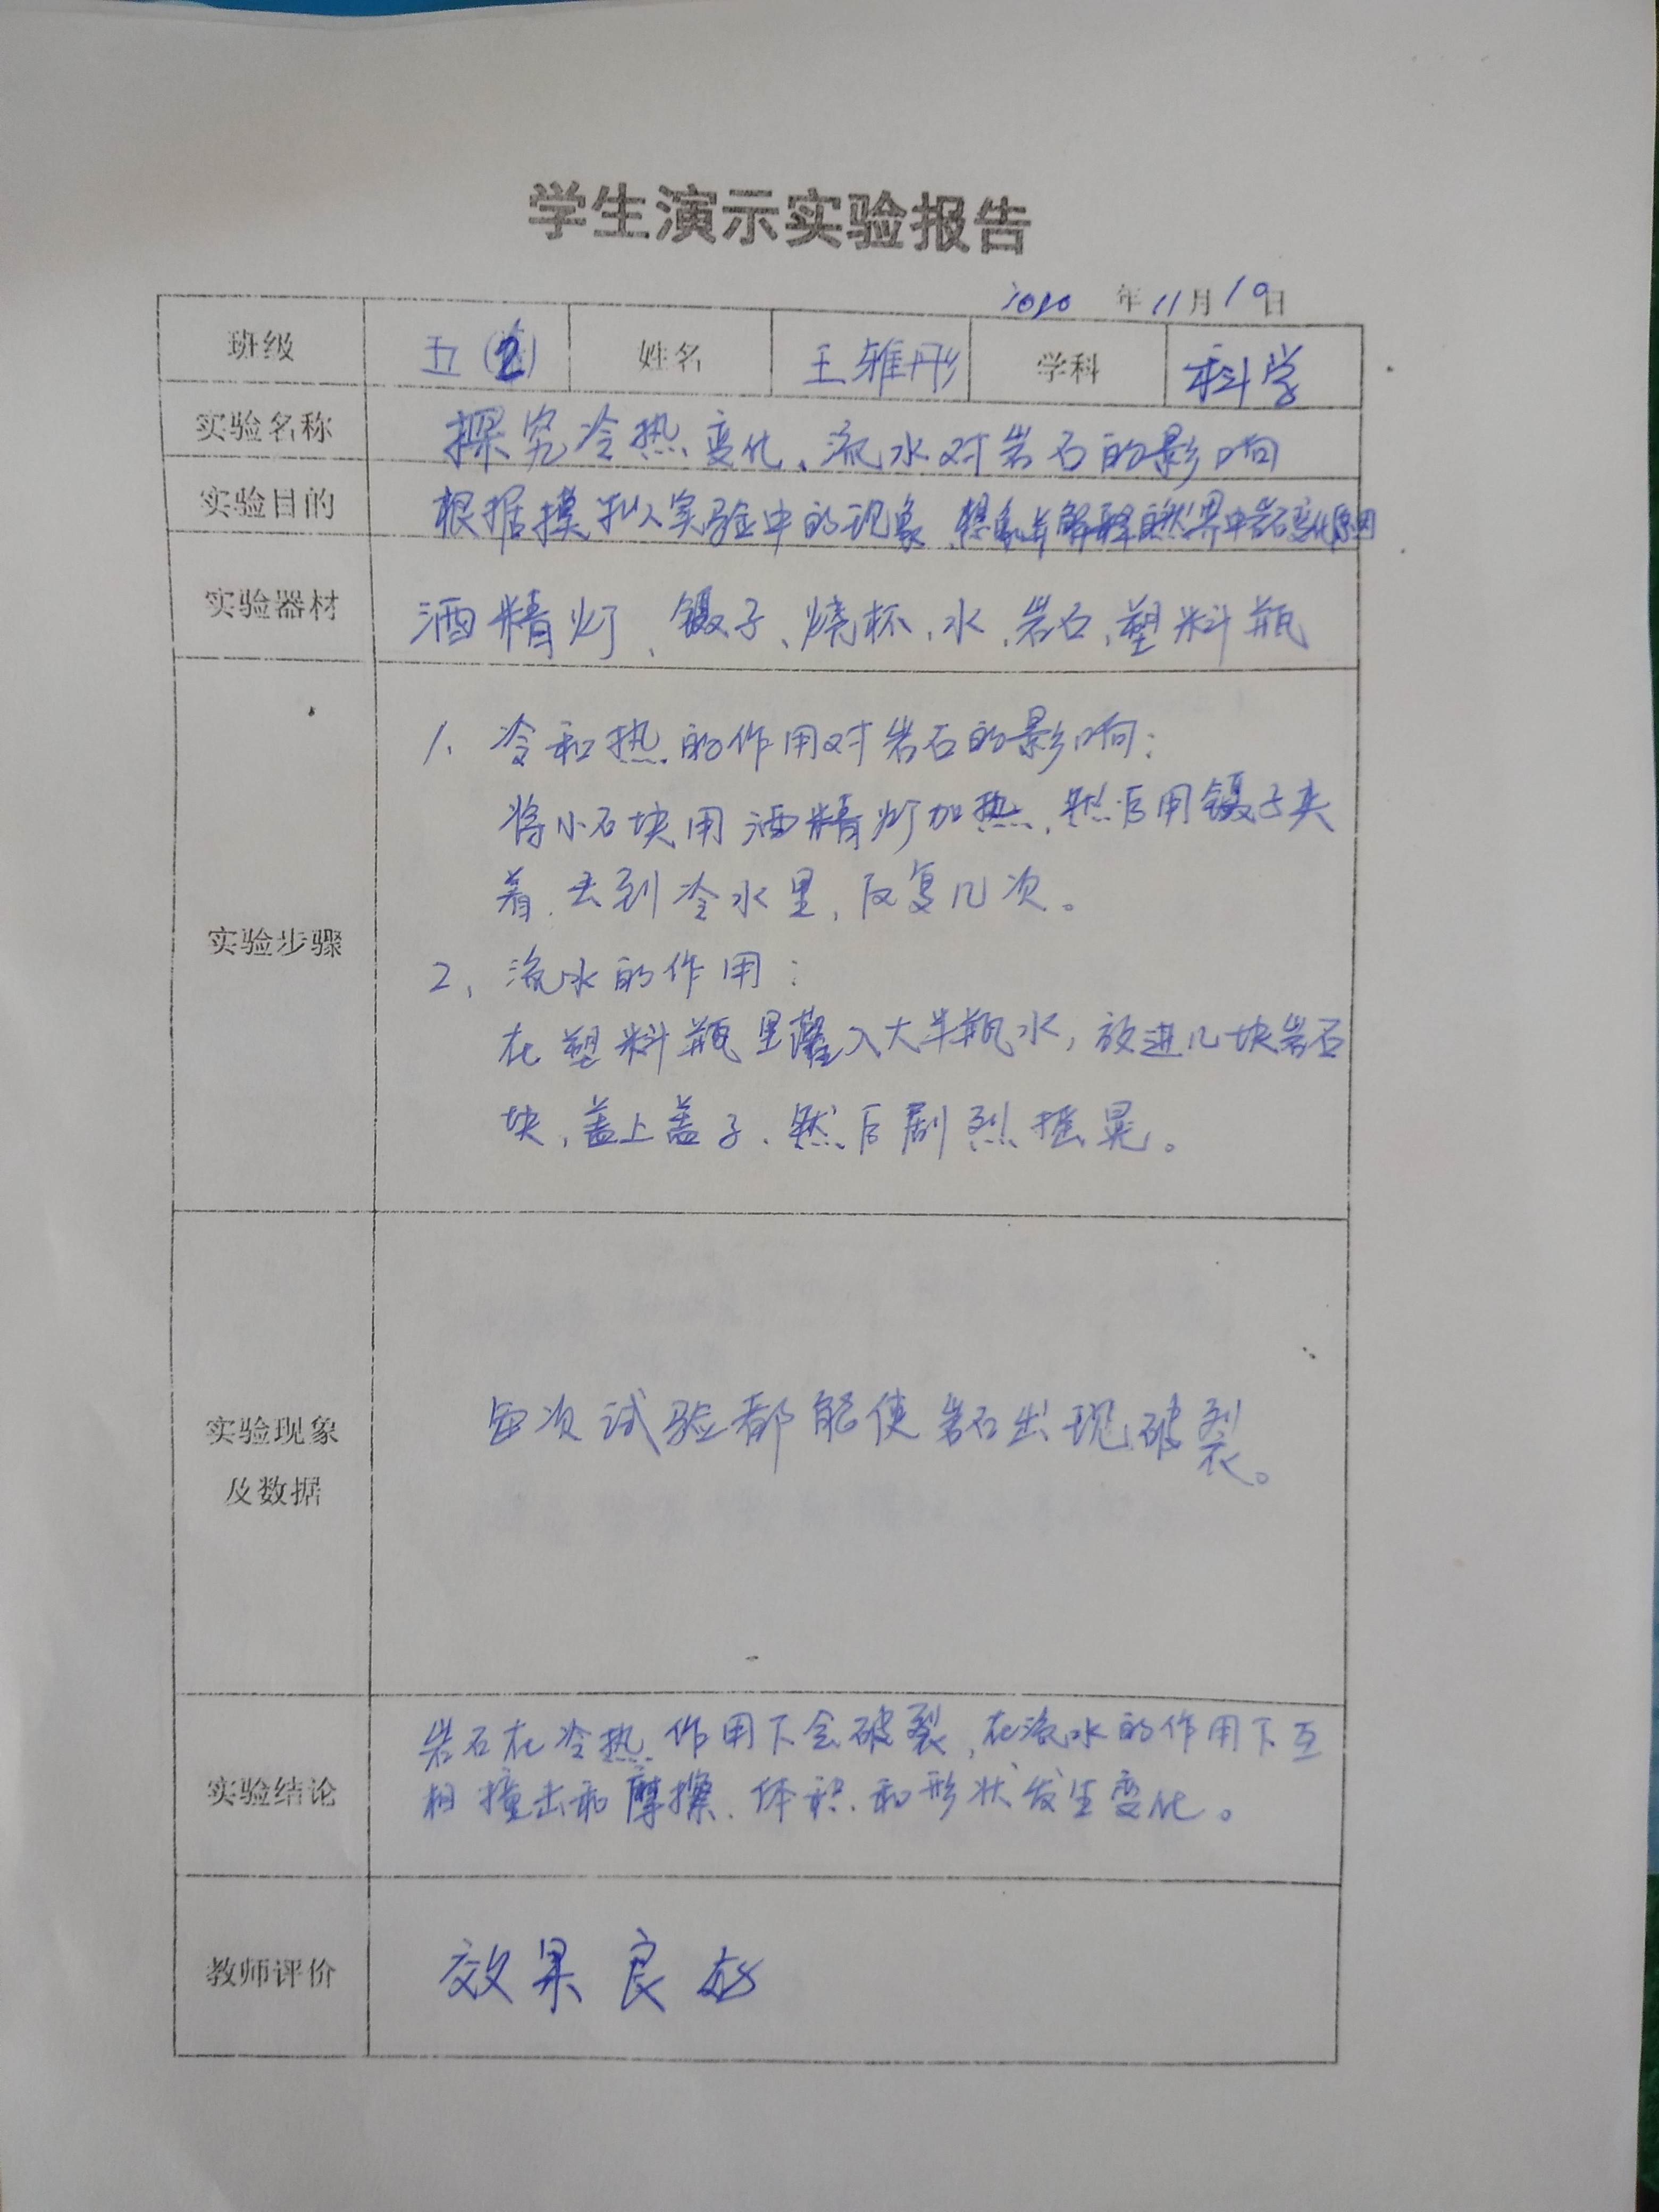 学生演示实验报告
2020 年 11 月 10 日
班级 五(2) 姓名 王雅彤 学科 科学
实验名称 探究冷热变化、流水对岩石的影响
实验目的 根据摸拟实验中的现象,想象并解释自然界中岩石变化原因
实验器材 酒精灯、镊子、烧杯、水、岩石、塑料瓶
1、冷和热的作用对岩石的影响:
将小石块用酒精灯加热,然后用镊子夹
着,丢到冷水里,反复几次。
实验步骤
2、流水的作用:
在塑料瓶里灌入大半瓶水,放进几块岩石
块,盖上盖子、然后剧烈摇晃。
实验现象
及数据
每次试验都能使岩石出现破裂。
实验结论
岩石在冷热作用下会破裂,在流水的作用下互
相撞击和摩擦、体积和形状发生变化。
教师评价 效果良好